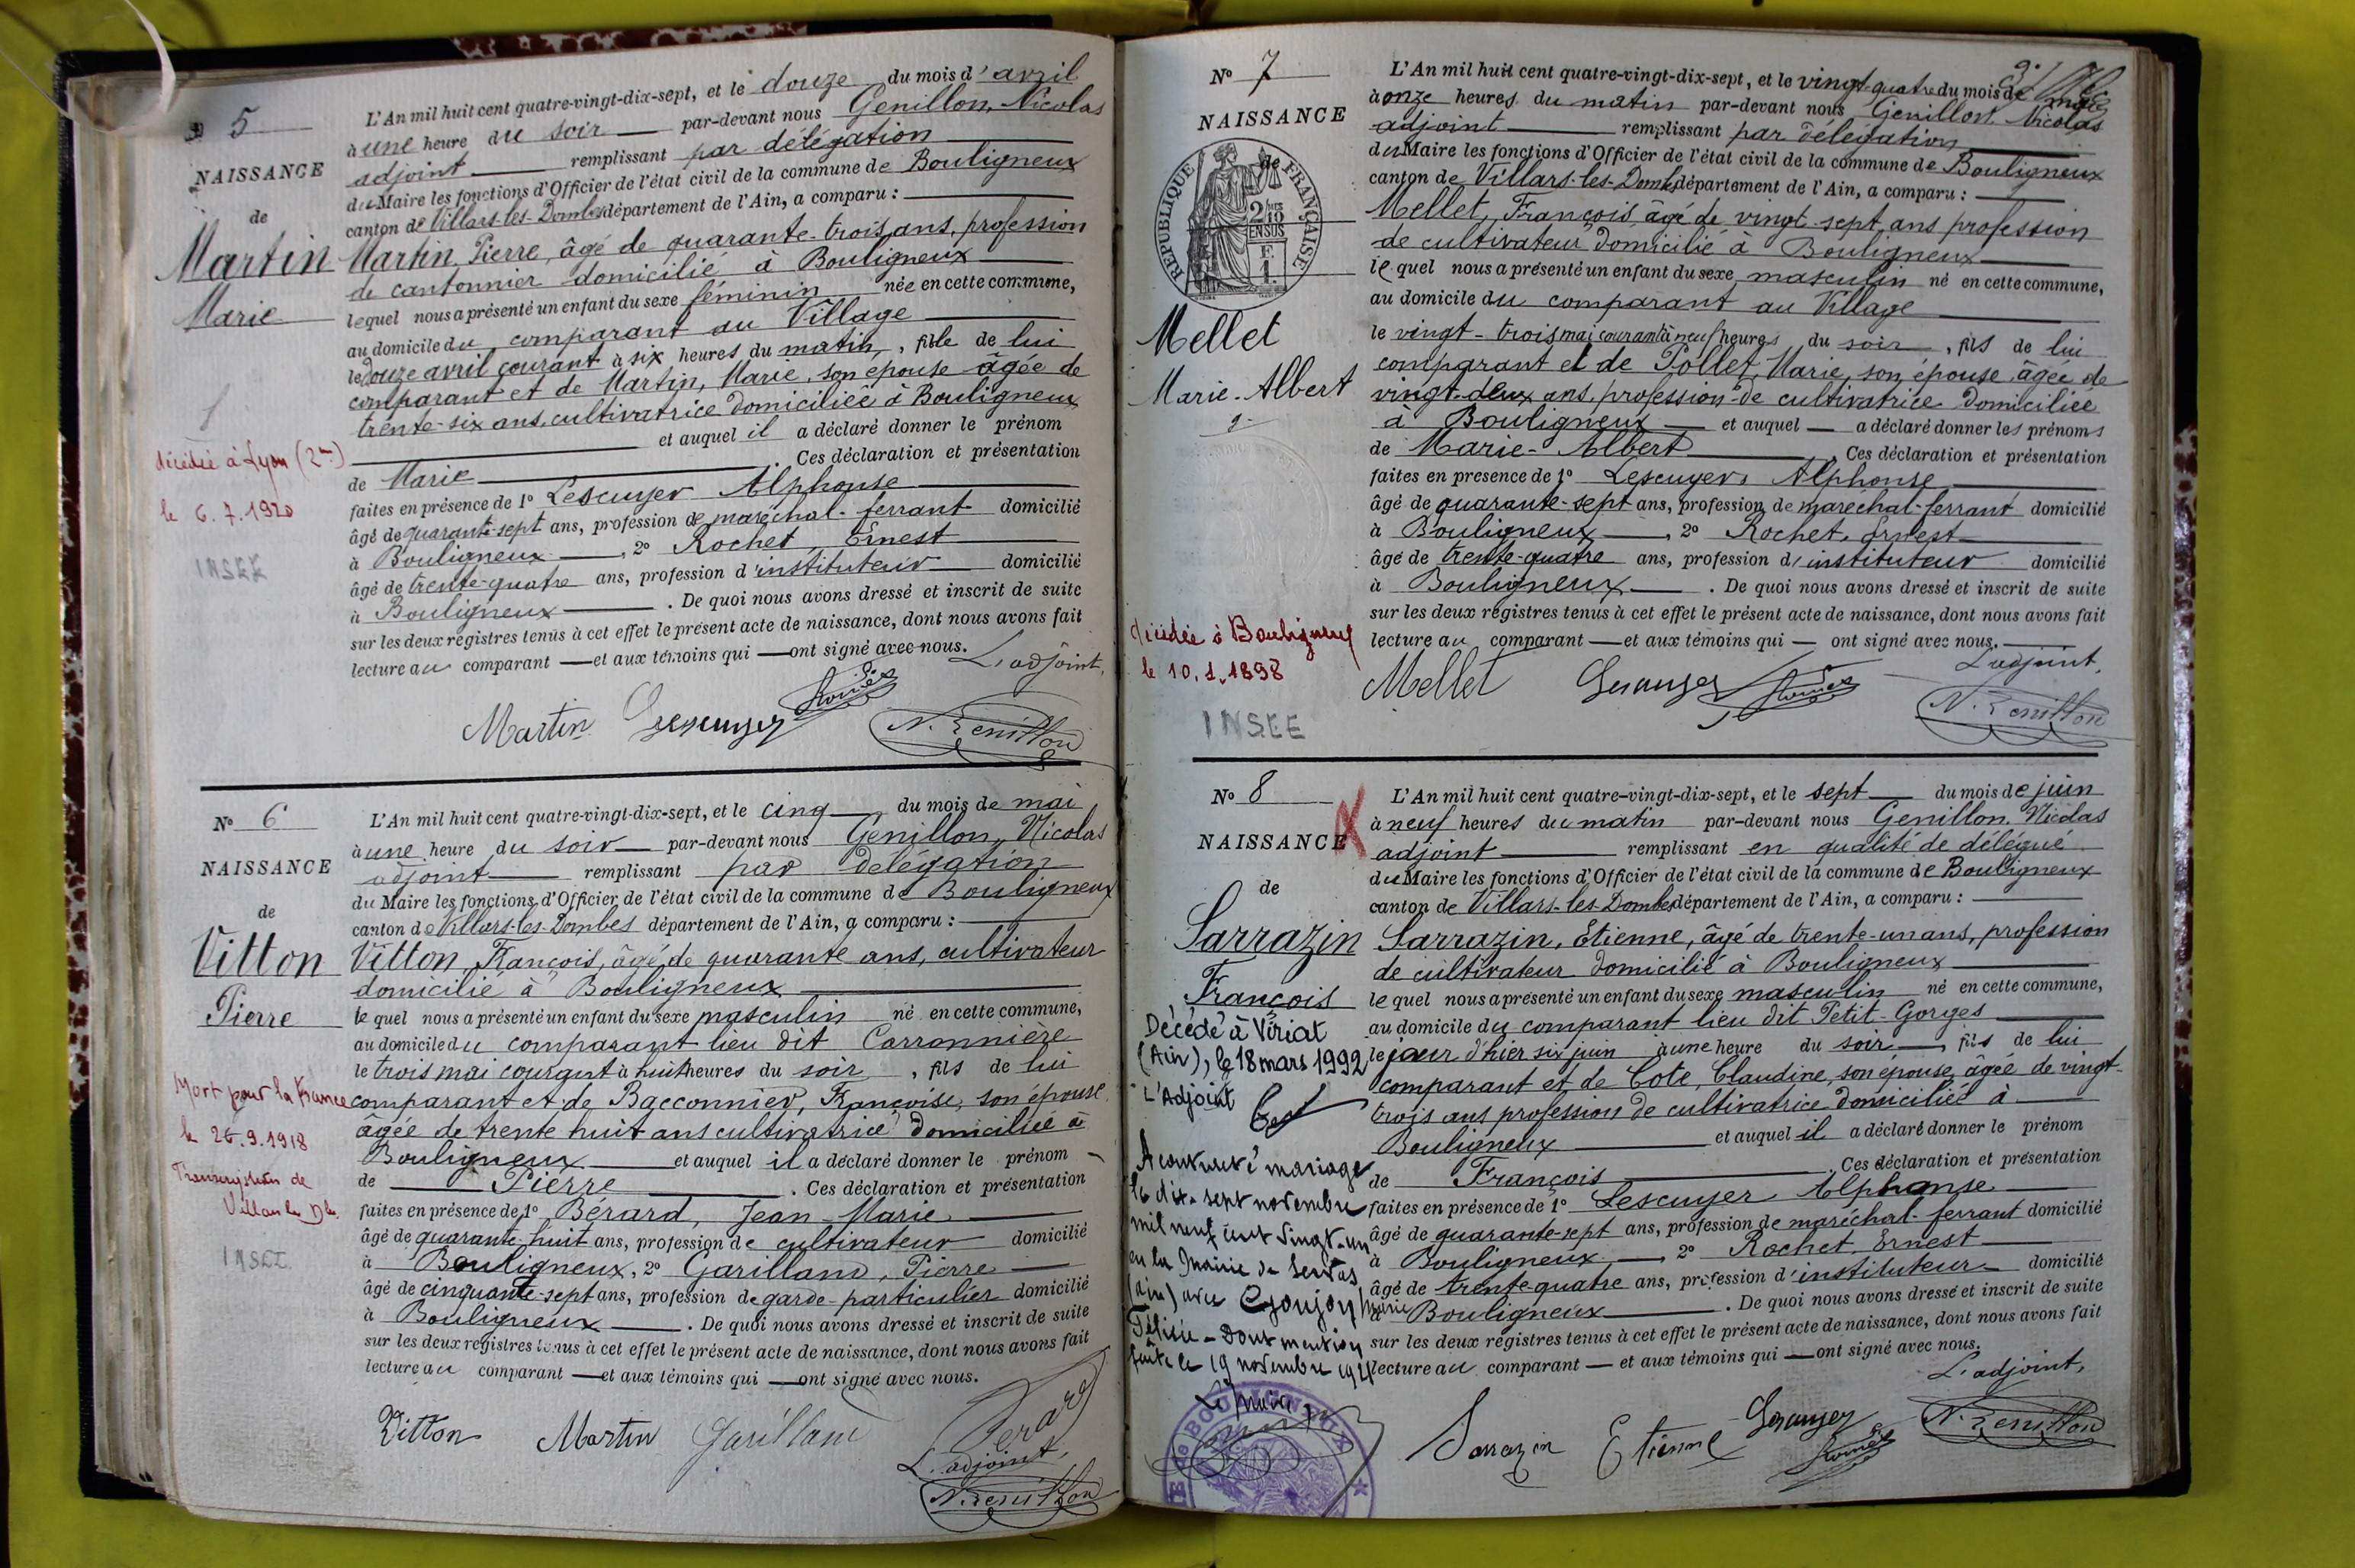 5
NAISSANCE
de
Martin
Marie
décédée à Lyon (2me)
le 6.7.1920
INSEE
L'An mil huit cent quatre-vingt-dix-sept, et le douze du mois d'avril
à une heure du soir par-devant nous Genillon, Nicolas
adjoint remplissant par délégation
du Maire les fonctions d'Officier de l'état civil de la commune de Bouligneux
canton de Villars-les-Dombes département de l'Ain, a comparu :
Martin, Pierre, âgé de quarante-trois ans, profession
de cantonnier domicilié à Bouligneux
lequel nous a présenté un enfant du sexe féminin née en cette commune,
au domicile du comparant au Village
le douze avril courant à six heures du matin, fille de lui
comparant et de Martin, Marie, son épouse âgée de
trente-six ans, cultivatrice domiciliée à Bouligneux
et auquel il a déclaré donner le prénom
de Marie. Ces déclaration et présentation
faites en présence de 1º Lescuyer Alphonse
âgé de quarante-sept ans, profession de maréchal-ferrant domicilié
à Bouligneux, 2º Rochet, Ernest
âgé de trente-quatre ans, profession d'instituteur domicilié
à Bouligneux. De quoi nous avons dressé et inscrit de suite
sur les deux registres tenus à cet effet le présent acte de naissance, dont nous avons fait
lecture au comparant et aux témoins qui ont signé avec nous.
L'adjoint,
Martin Lescuyer N. Genillon
Nº 6
NAISSANCE
de
Vitton
Pierre
Mort pour la France
le 26.9.1918
Transcription de
Villars les Dbes
INSEE
L'An mil huit cent quatre-vingt-dix-sept, et le cinq du mois de mai
à une heure du soir par-devant nous Genillon, Nicolas
adjoint remplissant par délégation
du Maire les fonctions d'Officier de l'état civil de la commune de Bouligneux
canton de Villars-les-Dombes département de l'Ain, a comparu :
Vitton, François, âgé de quarante ans, cultivateur
domicilié à Bouligneux
lequel nous a présenté un enfant du sexe masculin né en cette commune,
au domicile du comparant lieu dit Carronnière
le trois mai courant à huit heures du soir, fils de lui
comparant et de Bacconnier, Françoise, son épouse
âgée de trente huit ans cultivatrice domiciliée à
Bouligneux et auquel il a déclaré donner le prénom
de Pierre. Ces déclaration et présentation
faites en présence de 1º Bérard, Jean-Marie
âgé de quarante-huit ans, profession de cultivateur domicilié
à Bouligneux, 2º Garilland, Pierre
âgé de cinquante-sept ans, profession de garde-particulier domicilié
à Bouligneux. De quoi nous avons dressé et inscrit de suite
sur les deux registres tenus à cet effet le présent acte de naissance, dont nous avons fait
lecture au comparant et aux témoins qui ont signé avec nous.
Vitton Martin Garilland Bérard
L'adjoint,
N. Genillon
Nº 7
NAISSANCE
de
RÉPUBLIQUE FRANÇAISE
2/10 EN SUS
Mellet
Marie-Albert
décédée à Bouligneux
le 10.1.1898
INSEE
L'An mil huit cent quatre-vingt-dix-sept, et le vingt-quatre du mois de mai
à onze heures du matin par-devant nous Genillon, Nicolas
adjoint remplissant par délégation
du Maire les fonctions d'Officier de l'état civil de la commune de Bouligneux
canton de Villars-les-Dombes département de l'Ain, a comparu :
Mellet, François, âgé de vingt-sept ans profession
de cultivateur domicilié à Bouligneux
lequel nous a présenté un enfant du sexe masculin né en cette commune,
au domicile du comparant au Village
le vingt-trois mai courant à neuf heures du soir, fils de lui
comparant et de Pollet, Marie, son épouse, âgée de
vingt-deux ans, profession de cultivatrice domiciliée
à Bouligneux et auquel a déclaré donner les prénoms
de Marie-Albert. Ces déclaration et présentation
faites en présence de 1º Lescuyer, Alphonse
âgé de quarante-sept ans, profession de maréchal-ferrant domicilié
à Bouligneux, 2º Rochet, Ernest
âgé de trente-quatre ans, profession d'instituteur domicilié
à Bouligneux. De quoi nous avons dressé et inscrit de suite
sur les deux registres tenus à cet effet le présent acte de naissance, dont nous avons fait
lecture au comparant et aux témoins qui ont signé avec nous.
L'adjoint,
Mellet Lescuyer N. Genillon
Nº 8
NAISSANCE
de
Sarrazin
François
Décédé à Viriat
(Ain), le 18 mars 1992
L'Adjoint
A contracté mariage
le dix-sept novembre
mil neuf cent vingt-un
en la Mairie de Servas
(Ain) avec Goujon Marie
Félicie - Dont mention
faite le 19 novembre 1921
Le Maire
BOULIGNEUX
L'An mil huit cent quatre-vingt-dix-sept, et le sept du mois de juin
à neuf heures du matin par-devant nous Genillon, Nicolas
adjoint remplissant en qualité de délégué
du Maire les fonctions d'Officier de l'état civil de la commune de Bouligneux
canton de Villars-les-Dombes département de l'Ain, a comparu :
Sarrazin, Etienne, âgé de trente-un ans, profession
de cultivateur domicilié à Bouligneux
lequel nous a présenté un enfant du sexe masculin né en cette commune,
au domicile du comparant lieu dit Petit-Gorges
le jour d'hier six juin à une heure du soir, fils de lui
comparant et de Cote, Claudine, son épouse, âgée de vingt-
trois ans profession de cultivatrice domiciliée à
Bouligneux et auquel il a déclaré donner le prénom
de François. Ces déclaration et présentation
faites en présence de 1º Lescuyer Alphonse
âgé de quarante-sept ans, profession de maréchal-ferrant domicilié
à Bouligneux, 2º Rochet, Ernest
âgé de trente-quatre ans, profession d'instituteur domicilié
à Bouligneux. De quoi nous avons dressé et inscrit de suite
sur les deux registres tenus à cet effet le présent acte de naissance, dont nous avons fait
lecture au comparant et aux témoins qui ont signé avec nous.
L'adjoint,
Sarrazin Etienne Lescuyer N. Genillon